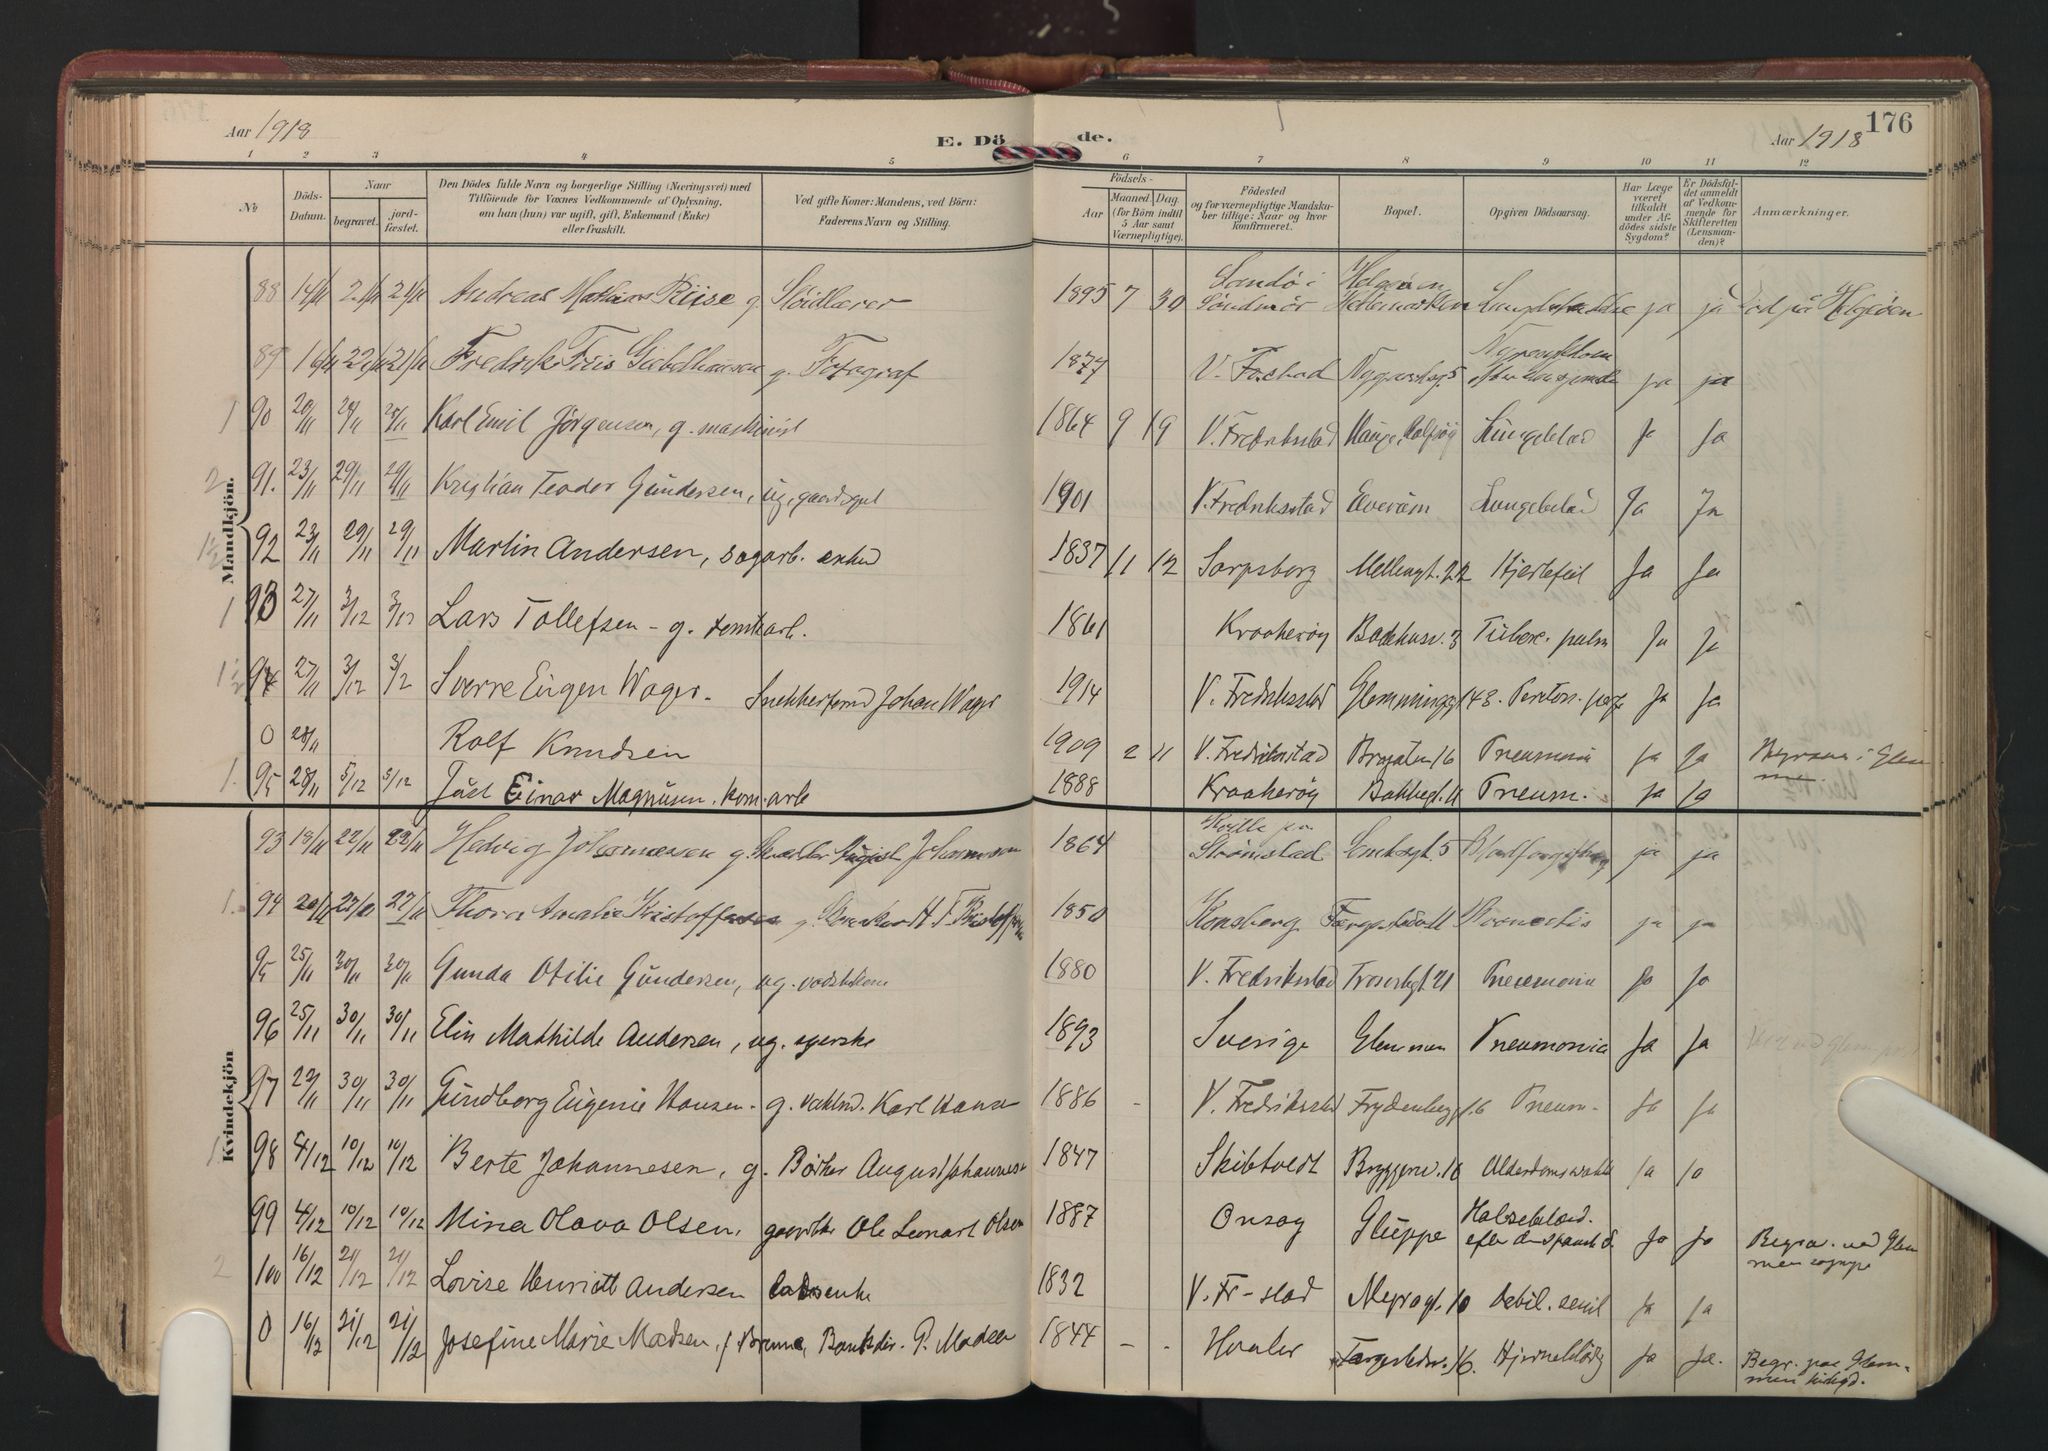 176
Aar 1918
E. Dö
de.
Aar 1918
1 2 3 4 5 6 7 8 9 10 11 12
No
Döds-
Datum.
Naar
begravet.
jord-
fæstet.
Den Dödes fulde Navn og borgerlige Stilling (Næringsvei) med
Tilföiende for Voxnes Vedkommende af Oplysning,
om han (hun) var ugift, gift, Enkemand (Enke)
eller fraskilt.
Ved gifte Koner: Mandens, ved Börn:
Faderens Navn og Stilling.
Födsels-
Aar
Maaned. Dag.
(for Börn indtil
5 Aar samt
Værnepligtige).
Födested
og for værnepligtige Mandska-
ber tillige: Naar og hvor
konfirmeret.
Bopæl.
Opgiven Dödsaarsag.
Har Læge
været
tilkaldt
under Af-
dödes sidste
Sygdom?
Er Dödsfal-
det anmeldt
af Vedkom-
mende for
Skifteretten
(Lensman-
den)?
Anmærkninger.
Mandkjön.
88 14/11 21/11 21/11 Andreas Mathias Riise g. Slöidlærer 1895 7 30 Sandö i Söndmör Helgöen Hedemarken ja ja Død på Helgöen
89 16/11 22/11 21/11 Fredrik Friis Giebelhausen g. Fotograf 1877 V. Fr.stad Nygaardsg. 5 ja ja
1 90 20/11 Karl Emil Jörgensen, g. maskinist 1864 9 19 V. Fredrikstad Hauge, Rolfsöy Lungebetæn Ja Ja
2 91. 23/11 29/11 29/11 Kristian Teodor Gundersen, ug. gaardsgut 1901 V. Fredriksstad Lungebetæn Ja Ja
1½ 92 23/11 29/11 29/11 Martin Andersen, sagarb. enkem 1837 11 12 Sarpsborg Mellemgt. 22 Hjertefeil Ja Ja
1 93 27/11 3/12 3/12 Lars Tollefsen - g. tomtearb. 1861 Kraakeröy Badehusv. 3 Tuberc. pulm Ja Ja
1½ 94 27/11 3/12 3/12 Sverre Eugen Wager. Snekkerformd Johan Wager 1914 V. Fredriksstad Glemminggt 43. Periton. perf Ja Ja
0 28/11 Rolf Knudsen 1909 2 11 V. Fredrikstad Brogaten 16 Pneumonia Ja Ja Begraves i Glem-
men.
1. 95 28/11 5/12 5/12 Just Einar Magnusen. kom.arb 1888 Kraakeröy Bakkegt. 11 Pneum. Ja Ja
Kvindekjön
93 18/11 22/11 22/11 Hedvig Johannesen g. August Johannesen 1864 Strömstad ja ja
1. 94 20/11 27/11 27/11 Thora Amalie Kristoffersen g. 1850 Konsberg Bronchitis ja ja
95 25/11 30/11 30/11 Gunda Otilie Gundersen, ug. vadskekone 1880 V. Fredrikstad Trosvikgt 21 Pneumonia Ja Ja
96 25/11 30/11 30/11 Elin Mathilde Andersen, ug. syerske 1893 Sverige Glemmen Pneumonia Ja Ja
97 29/11 30/11 30/11 Gundborg Eugenie Hansen - g. Karl Hansen 1886 - V. Fredriksstad Frydenberggt. 6 Pneum- Ja Ja
1 98 4/12 10/12 10/12 Berte Johannesen, g. Bödker August Johannesen 1847 Skibtvedt Bryggeriv. 18 Alderdomssvakh Ja Ja
99 4/12 10/12 10/12 Mina Olava Olsen. Ole Leonart Olsen 1887 Onsøy Gluppe Halsebetænd.
efter den spanske s. Ja Ja Begra. ved Glem
men sogn
2 100 16/12 21/12 21/12 Lovise Henriette Andersen 1832 V. Fr-stad Nygaagt. 10 Debil. senil Ja Ja
0 16/12 21/12 21/12 Josefine Marie Madsen, f. Brunn, Bankdir. P. Madsen 1844 - - Hvaler Færgestedsv. 16. Hjerneblödn. Ja Ja. Begr. paa Glem-
men kirkegd.